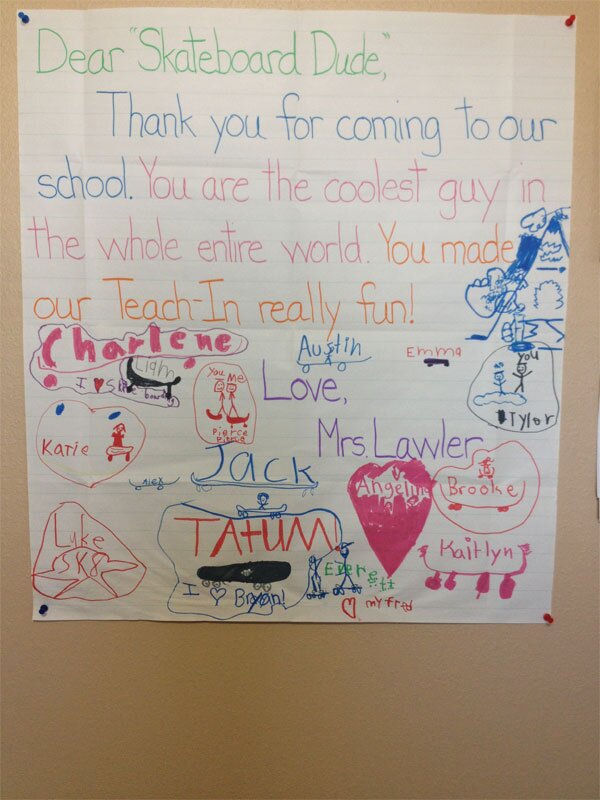 Dear "Skateboard Dude,"
Thank you for coming to our
school. You are the coolest guy in
the whole entire world. You made
our Teach-In really fun!
Charlene
Liam
I ♥ Skateboarding
Austin
Emma
You
Tyler
You Me
Pierce
Love,
Mrs. Lawler
Katie
Alex
Jack
Angelina
Brooke
Luke
SK8
TATUM!
I ♡ Bryan!
Everett
♡ my fred
Kaitlyn